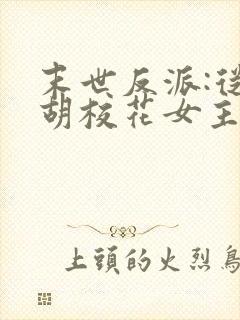 末世反派:從
胡校花女主
上頭的火烈鳥